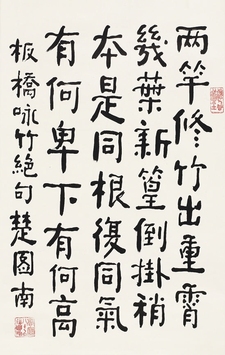 两竿修竹出重霄
幾葉新篁倒掛梢
本是同根復同氣
有何卑下有何高
板橋咏竹絕句楚圖南